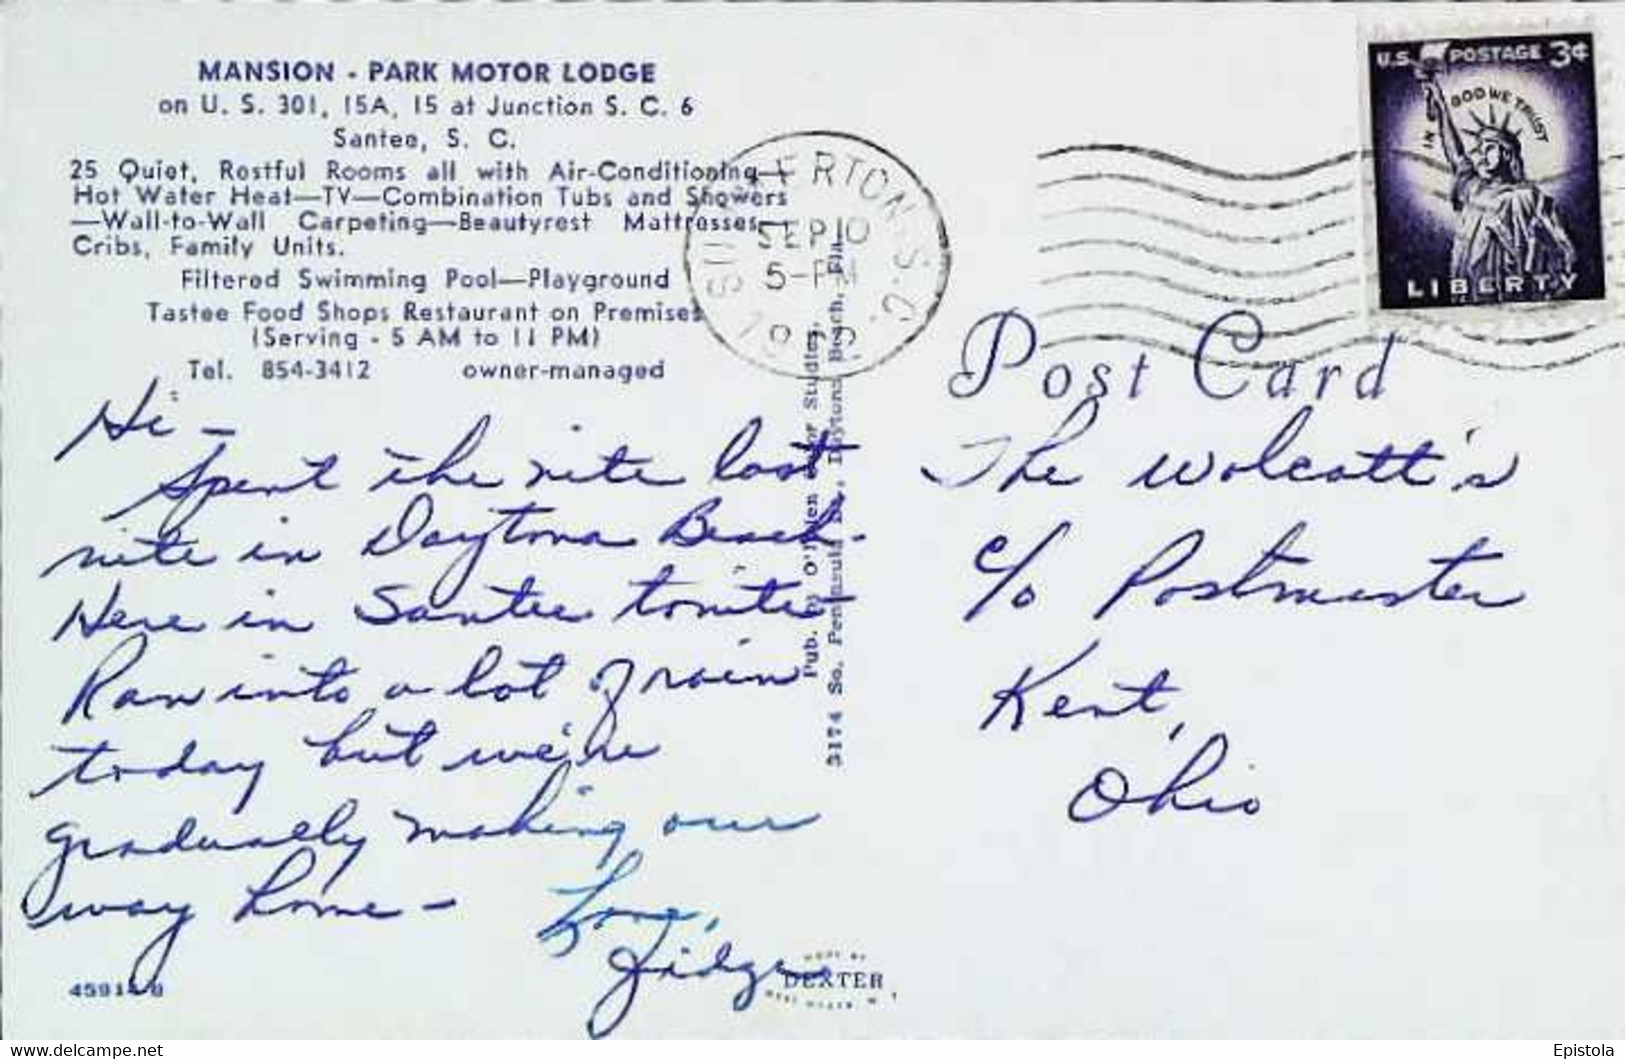 MANSION - PARK MOTOR LODGE
on U. S. 301, 15A, 15 at Junction S. C. 6
Santee, S. C.
25 Quiet, Restful Rooms all with Air-Conditioning—
Hot Water Heat—TV—Combination Tubs and Showers
—Wall-to-Wall Carpeting—Beautyrest Mattresses—
Cribs, Family Units.
Filtered Swimming Pool—Playground
Tastee Food Shops Restaurant on Premises
(Serving - 5 AM to 11 PM)
Tel. 854-3412 owner-managed
Hi -
Spent the nite last
nite in Daytona Beach.
Here in Santee tonite
Ran into a lot of rain
today but we're
gradually making our
way home -
Love,
Jidge
45914-B
MADE BY
DEXTER
WEST NYACK, N. Y.
Pub. by O'Brien Color Studios,
3174 So. Peninsula Dr., Daytona Beach, Fla.
SUMMERTON, S.C.
SEP 10
5-PM
U.S. POSTAGE 3¢
IN GOD WE TRUST
LIBERTY
Post Card
The Wolcott's
c/o Postmaster
Kent,
Ohio
delcampe.net
Epistola